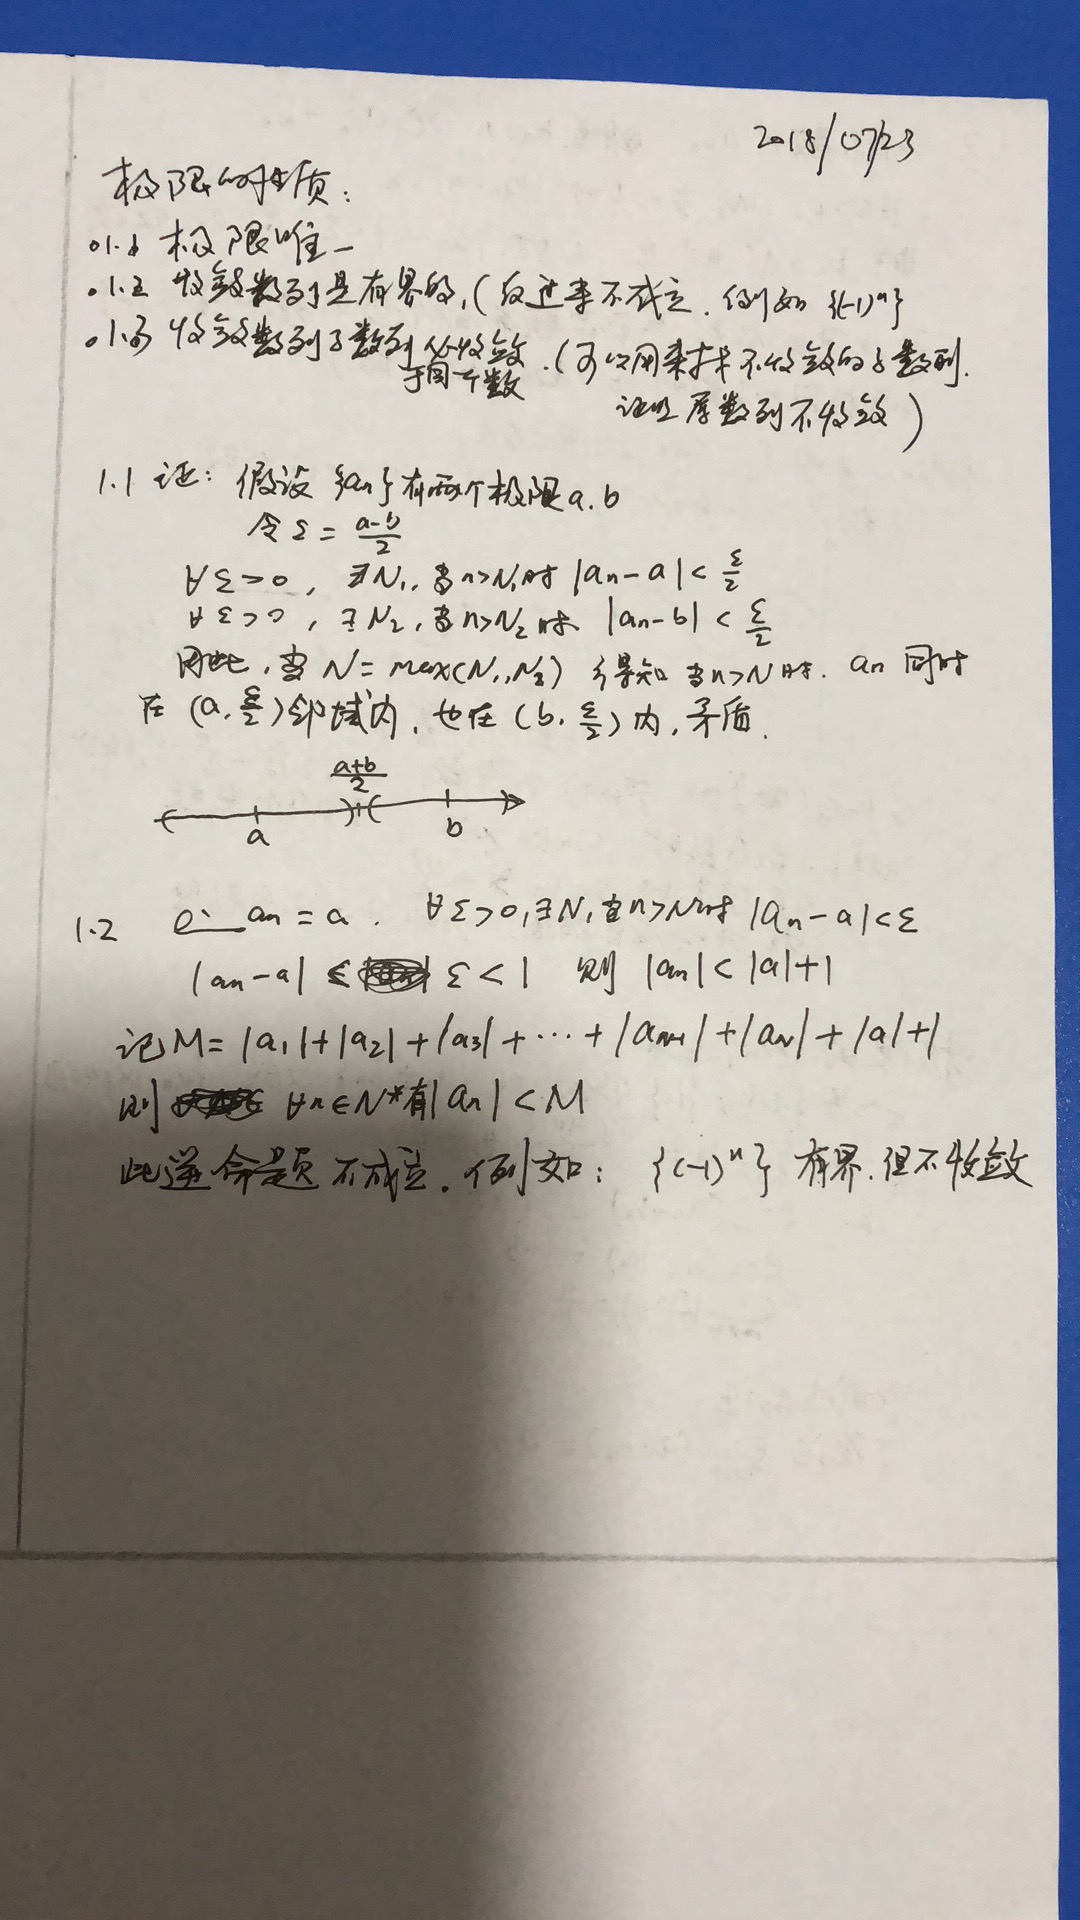 2018/07/23
极限的性质：
1.1 极限唯一
1.2 收敛数列是有界的，(反过来不成立．例如 {(-1)ⁿ}
1.3 收敛数列子数列必收敛．(可以用来找不收敛的子数列．
于同一个数
证明 原数列不收敛)
1.1 证：假设 {an} 有两个极限 a.b
令 ε = (a-b)/2
∀ε>0, ∃N₁, 当n>N₁时 |an-a| < ε/2
∀ε>0, ∃N₂, 当n>N₂时 |an-b| < ε/2
因此，当 N = max(N₁,N₂) 得知 当n>N时．an 同时
在 (a, ε/2) 邻域内，也在 (b, ε/2) 内，矛盾．
(a+b)/2
a b
1.2 an = a． ∀ε>0, ∃N, 当n>N时 |an-a|<ε
|an-a| < ε < 1 则 |an| < |a|+1
记 M = |a₁|+|a₂|+|a₃|+⋯+|aN-1|+|aN|+|a|+1
则 ∀n∈N*有|an| < M
此逆命题不成立．例如：{(-1)ⁿ} 有界．但不收敛